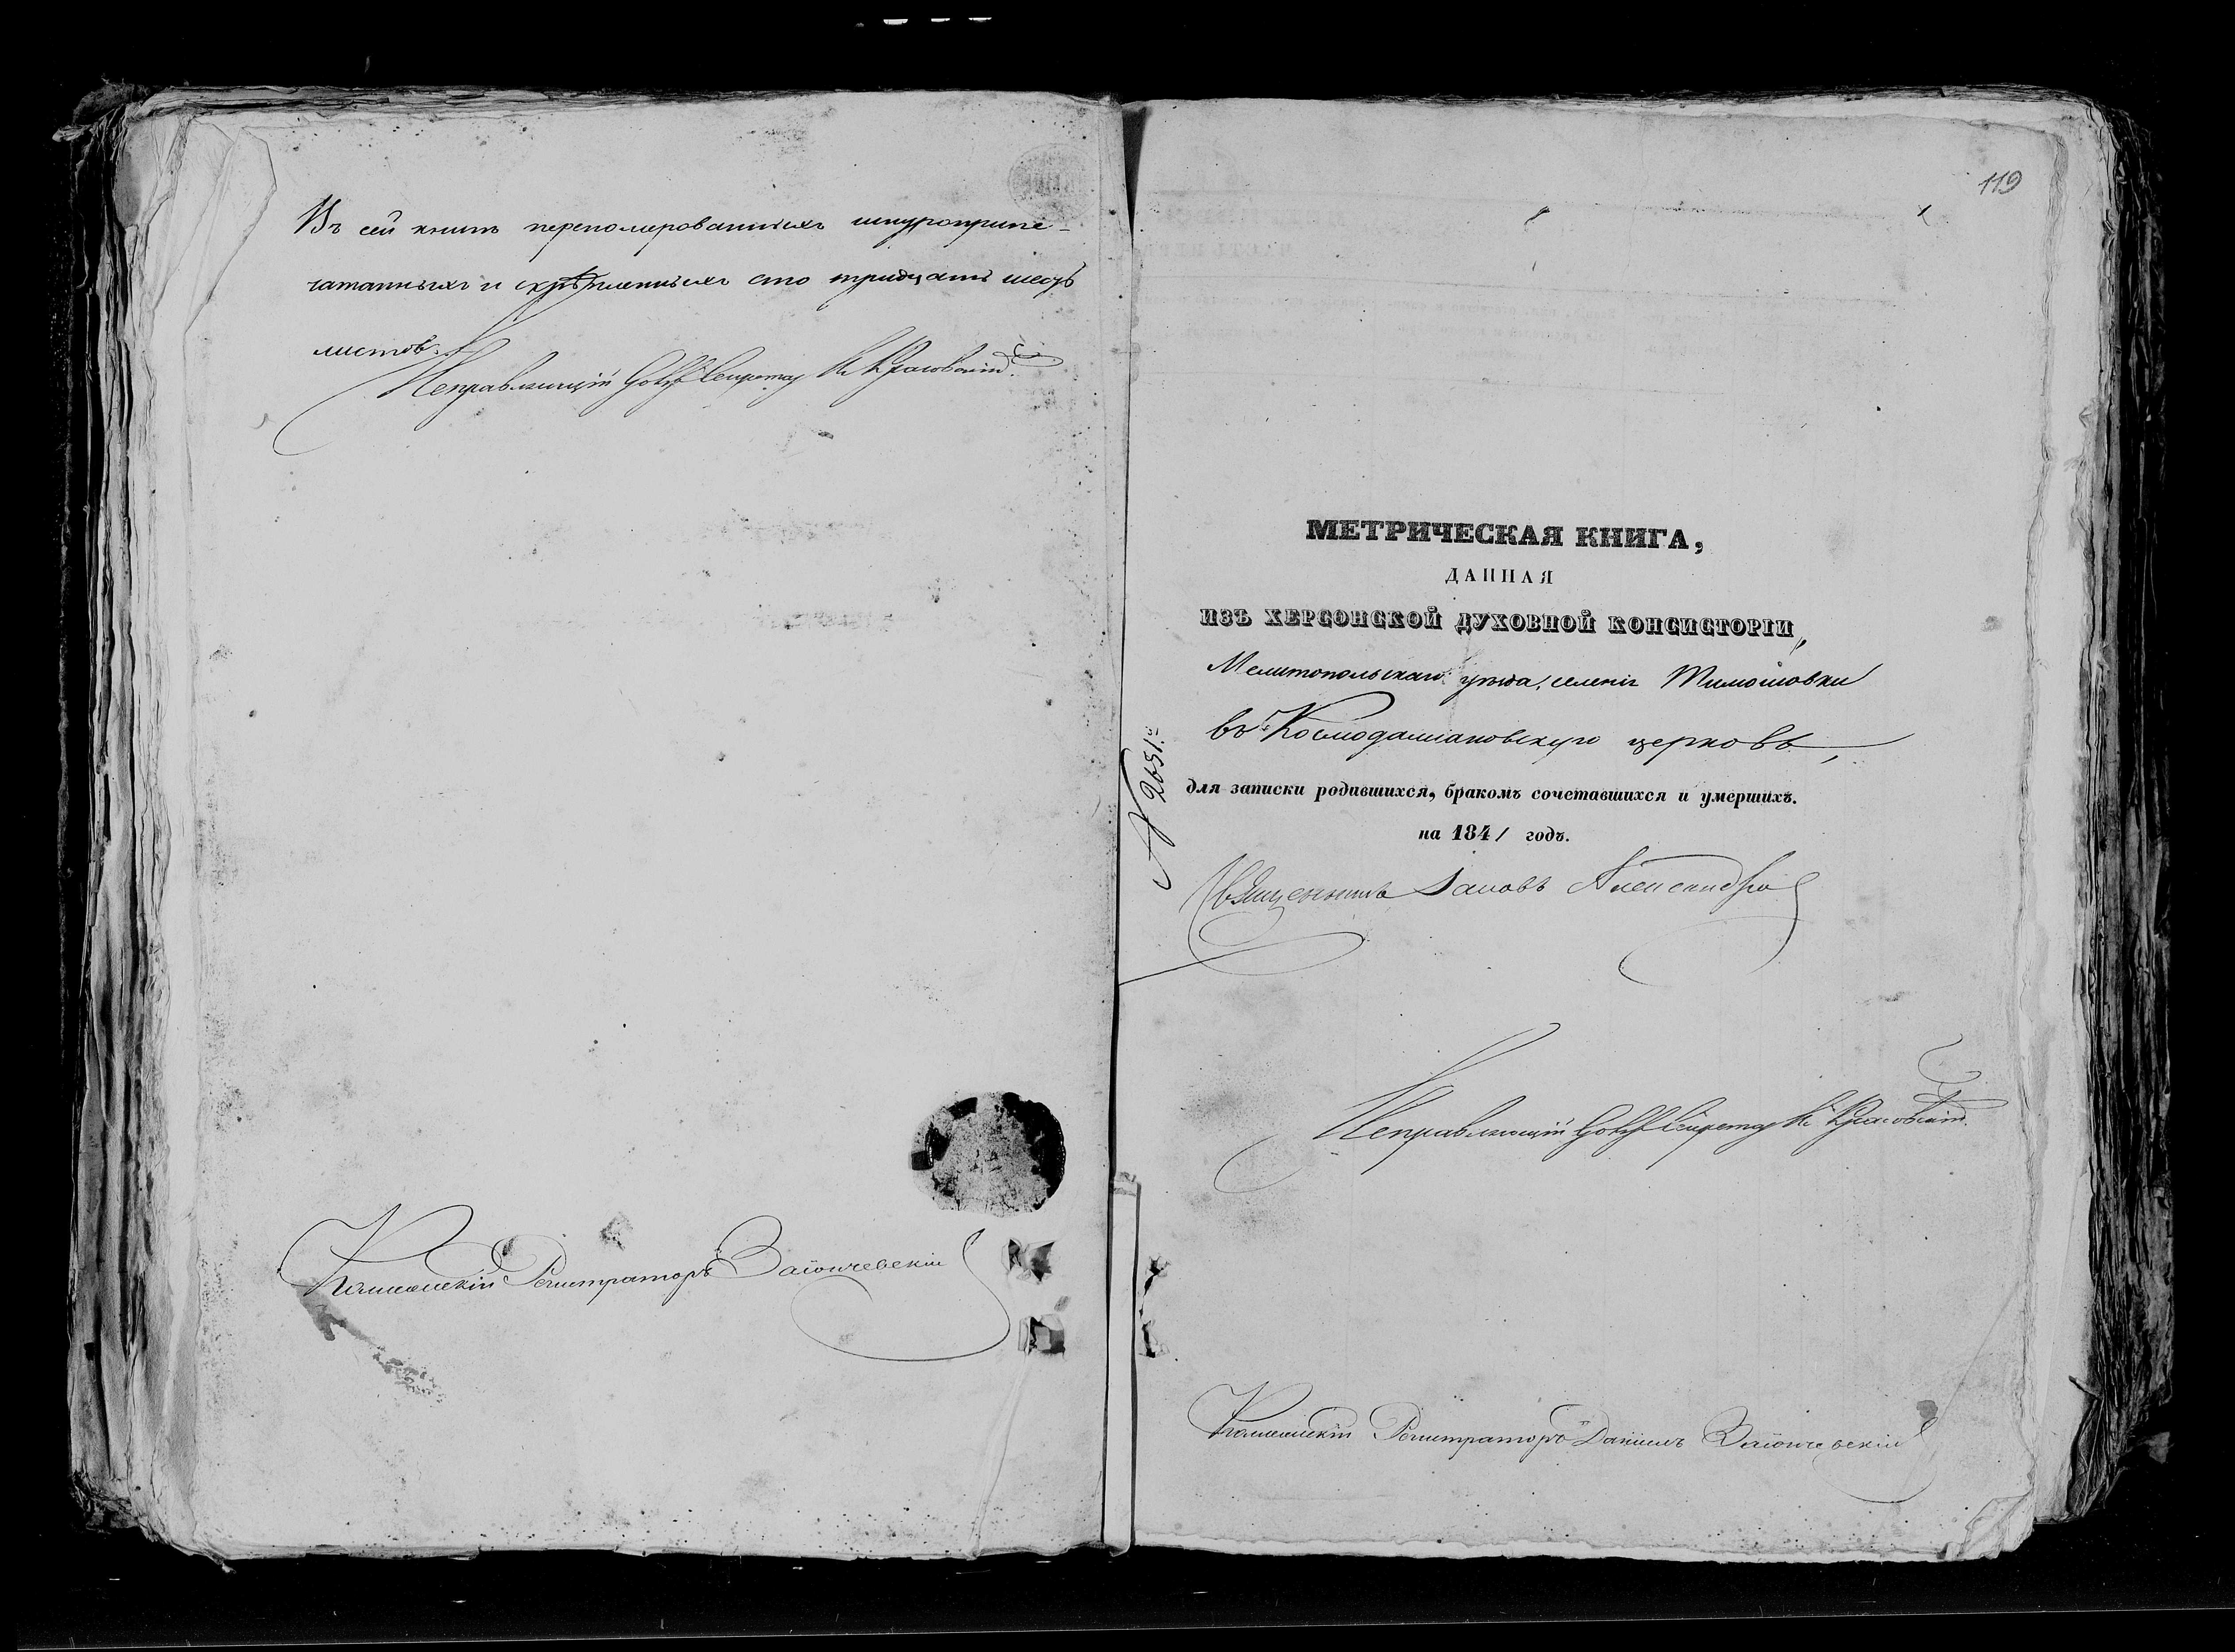 Въ сей книгѣ перекомерованныхъ шнуроприпе-
чатанныхъ и скрѣпленныхъ сто тридцать шесть
листов.
Исправляющій Секретар Красовскій
Коллежскій Регистраторъ Заіончевскій
119
МЕТРИЧЕСКАЯ КНИГА,
ДАННАЯ
ИЗЪ ХЕРСОНСКОЙ ДУХОВНОЙ КОНСИСТОРІИ,
Мелитопольскаго уѣзда, селенія Тимошовки
въ Космодаміановскую церковь,
№ 2651.
для записки родившихся, бракомъ сочетавшихся и умершихъ.
на 1841 годъ.
Священникъ Іаковъ
Исправляющій Секретар Красовскій
Коллежскій Регистраторъ Даніилъ Заіончевскій